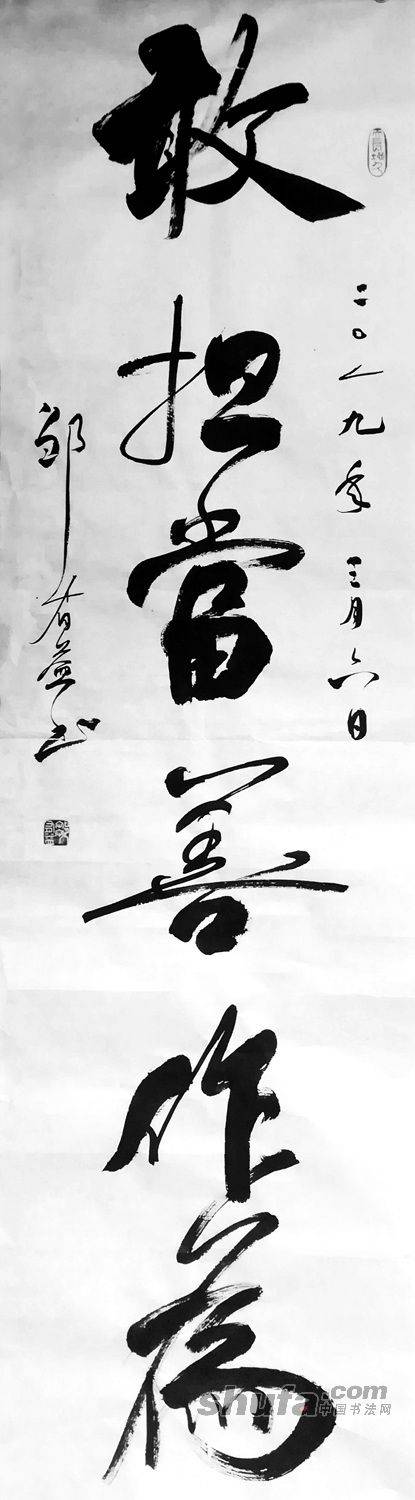 二〇一九年三月六日
敢担當善作為
邹有益书
shufa.com
中国书法网